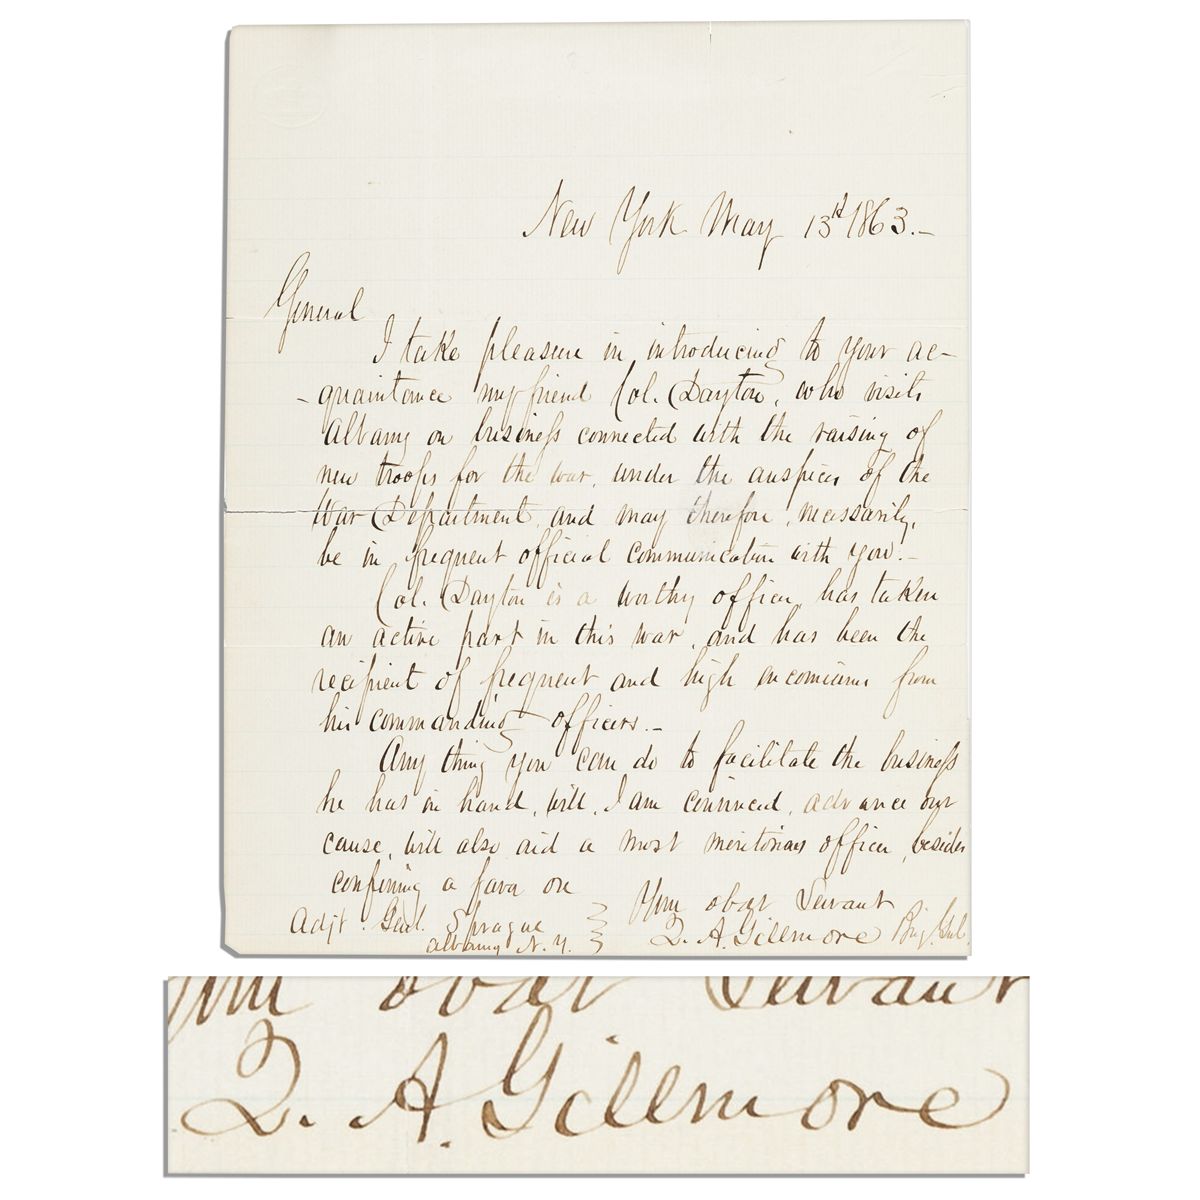 New York May 13th 1863.—
General
I take pleasure in introducing to your ac-
-quaintance my friend Col. Dayton, who visits
Albany on business connected with the raising of
new troops for the war, under the auspices of the
War Department, and may therefore, necessarily,
be in frequent official communication with you.—
Col. Dayton is a worthy officer, has taken
an active part in this war, and has been the
recipient of frequent and high encomiums from
his commanding officers.—
Any thing you can do to facilitate the business
he has in hand, will, I am convinced, advance our
cause, will also aid a most meritorious officer, besides
conferring a favor on
Your obdt Servant
Adjt. Genl. Sprague
Albany N.Y.
Q. A. Gillmore Brig. Genl.
Your obdt Servant
Q. A. Gillmore